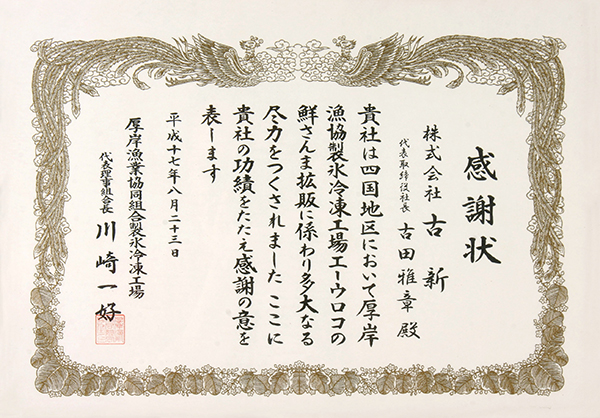 感謝状
株式会社 古新
代表取締役社長 古田雅章 殿
貴社は四国地区において厚岸
漁協製氷冷凍工場エーウロコの
鮮さんま拡販に係わり多大なる
尽力をつくされました ここに
貴社の功績をたたえ感謝の意を
表します
平成十七年八月二十三日
厚岸漁業協同組合製氷冷凍工場
代表理事組合長 川崎一好